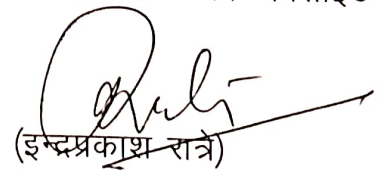 (इन्द्रप्रकाश रात्रे)